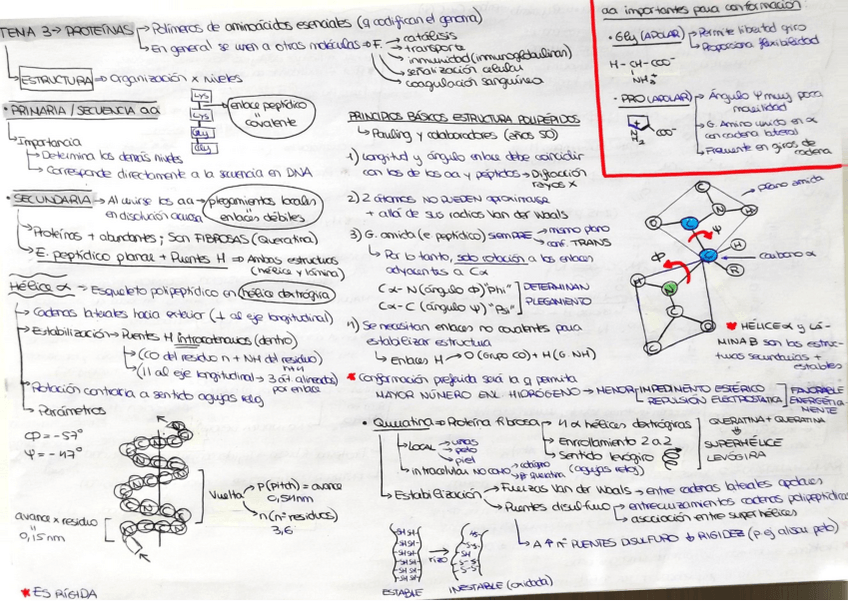 TEMA 3 → PROTEÍNAS → Polímeros de aminoácidos esenciales (q codifican el genoma)
→ En general se unen a otras moléculas → F.
→ catálisis
→ transporte
→ inmunidad (inmunoglobulinas)
→ señalización celular
→ coagulación sanguínea
ESTRUCTURA → Organización x niveles
• PRIMARIA / SECUENCIA aa
Lys
Lys
Gly
Gly
enlace peptídico
=
covalente
Importancia
→ Determina los demás niveles
→ Corresponde directamente a la secuencia en DNA
• SECUNDARIA → Al unirse los aa → plegamientos locales
en disolución acuosa
enlaces débiles
Proteínas + abundantes; Son FIBROSAS (Queratina)
E. peptídico planar + Puentes H ⇒ Ambas estructuras
(hélice y lámina)
Hélice α → Esqueleto polipeptídico en hélice dextrógira
→ Cadenas laterales hacia exterior (⊥ al eje longitudinal)
→ Estabilización → Puentes H intracatenarios (dentro)
→ (CO del residuo n + NH del residuo)
n+4
→ (11 al eje longitudinal → 3 alineados)
por enlace
→ Rotación contraria a sentido agujas reloj
→ Parámetros
Φ = -57°
Ψ = -47°
avance x residuo
= 0,15nm
Vuelta
P (Pitch) = avance
0,54nm
n (nº residuos)
3,6
* ES RÍGIDA
PRINCIPIOS BÁSICOS ESTRUCTURA POLIPÉPIDOS
→ Pauling y colaboradores (años 50)
1) Longitud y ángulo enlace debe coincidir
con los de los aa y péptidos → Difracción
rayos X
2) 2 átomos NO PUEDEN aproximarse
+ allá de sus radios Van der Waals
3) G. amida (e peptídico) SIEMPRE → mismo plano
→ conf. TRANS
→ Por lo tanto, solo rotación a los enlaces
adyacentes a Cα
Cα - N (ángulo Φ) "Phi"
Cα - C (ángulo Ψ) "Psi"
DETERMINAN
PLEGAMIENTO
4) Se necesitan enlaces no covalentes para
estabilizar estructura
→ enlaces H → O (Grupo CO) + H (G. NH)
* Conformación preferida será la q permita
MAYOR NÚMERO ENL HIDRÓGENO → MENOR
IMPEDIMENTO ESTÉRICO
REPULSIÓN ELECTROSTÁTICA
FAVORABLE
ENERGÉTICA-
MENTE
• Queratina ⇒ Proteína fibrosa
→ 4 α hélices dextrógiras
→ Enrrollamiento 2 a 2
→ Sentido levógiro
(agujas reloj)
QUERATINA + QUERATINA
SUPERHÉLICE
LEVÓGIRA
→ Local
→ uñas
→ pelo
→ piel
→ intracelular NO CONF
→ β queratina
→ Estabilización
→ Fuerzas Van der Waals → entre cadenas laterales apolares
→ Puentes disulfuro
→ entrecruzamientos cadenas polipeptídicas
→ asociación entre superhélices
→ A ↑ nº PUENTES DISULFURO ↓ RIGIDEZ (p ej alisar pelo)
SH SH
rizo
S-S
ESTABLE
INESTABLE (oxidada)
aa importantes para conformación
• Gly (APOLAR) → Permite libertad giro
→ Proporciona flexibilidad
H - CH - COO⁻
NH₃⁺
• PRO (APOLAR) → Ángulo Ψ muy poca
movilidad
→ G. Amino unido en α
con cadena lateral
→ Frecuente en giros de
cadena
N
H₂
COO⁻
plano amida
Ψ
Φ
carbono α
O
C
N
H
R
* HÉLICE α y LÁ-
MINA B son las estruc-
turas secundarias +
estables